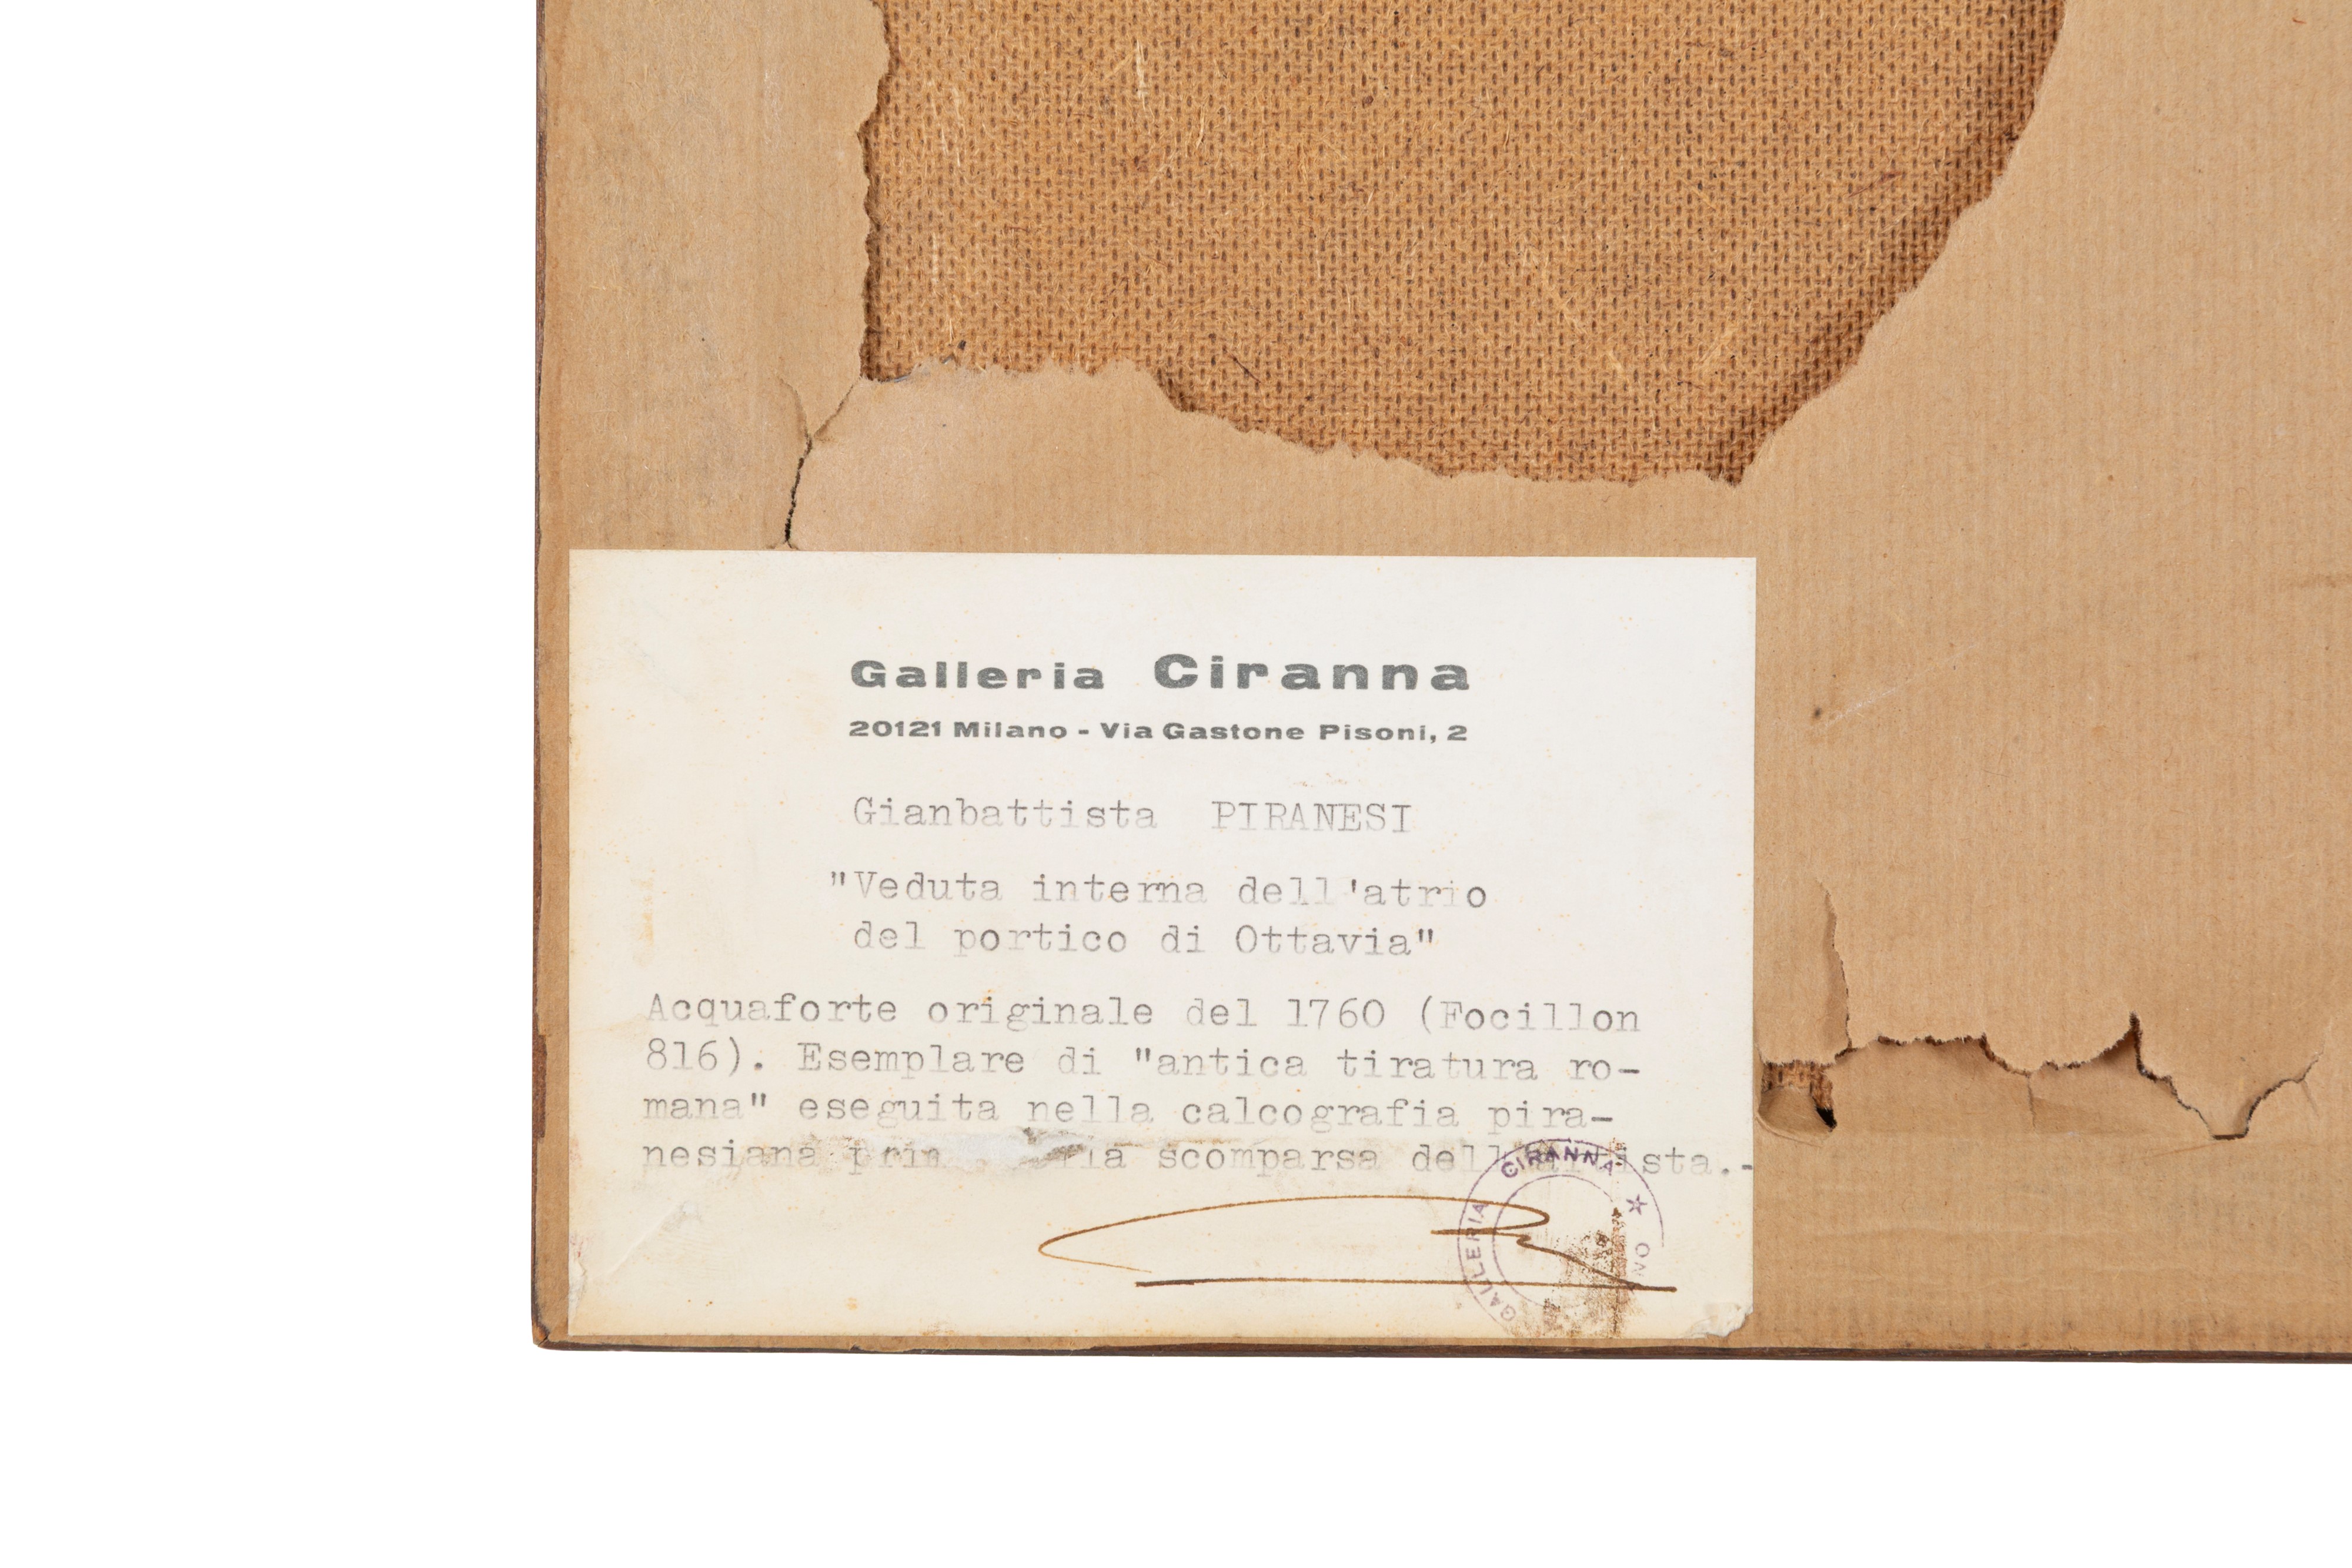 Galleria Ciranna
20121 Milano - Via Gastone Pisoni, 2
Gianbattista PIRANESI
"Veduta interna dell'atrio
del portico di Ottavia"
Acquaforte originale del 1760 (Focillon
816). Esemplare di "antica tiratura ro-
mana" eseguita nella calcografia pira-
nesiana scomparsa dell'artista.-
GALLERIA CIRANNA ★